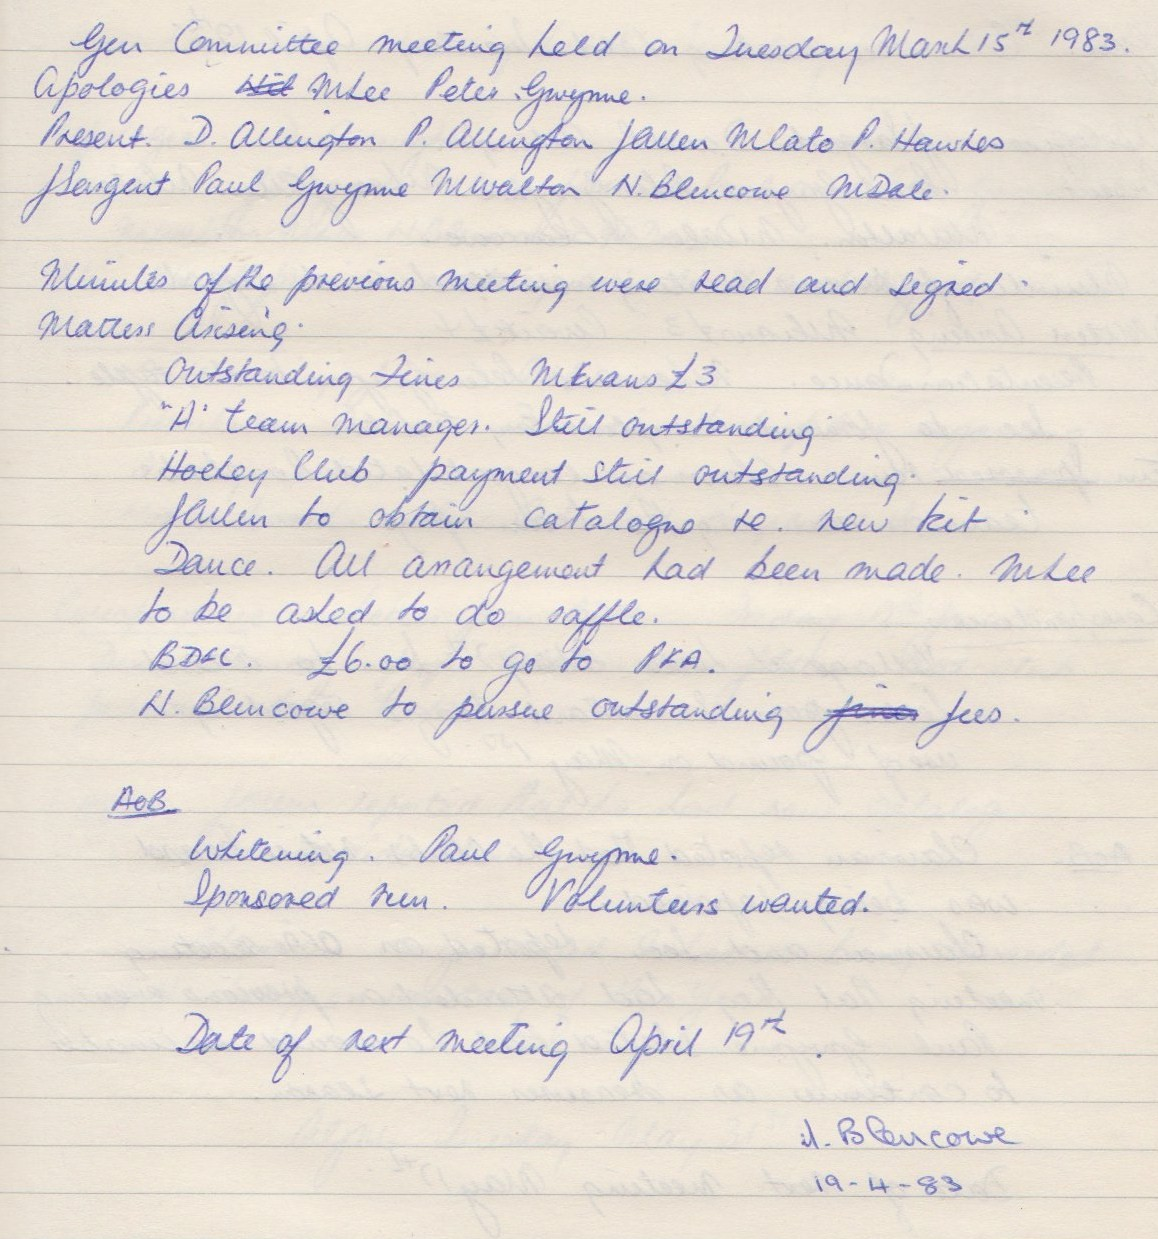 Gen Committee meeting held on Tuesday March 15th 1983.
Apologies Nil MLee Peter Gwynne.
Present. D. Allington P. Allington JAllen MLato P. Hawkes
JSargent Paul Gwynne MWalton N. Blencowe MDale.
Minutes of the previous meeting were read and signed.
Matters Arising.
Outstanding Fines MEvans £3
"A" team manager. Still outstanding
Hockey Club payment still outstanding.
JAllen to obtain catalogue re. new kit
Dance. All arrangement had been made. MLee
to be asked to do raffle.
£6.00 to go to PFA.
N. Blencowe to pursue outstanding fines fees.
AOB.
Whitening. Paul Gwynne.
Sponsored run. Volunteers wanted.
Date of next meeting April 19th.
N. Blencowe
19-4-83